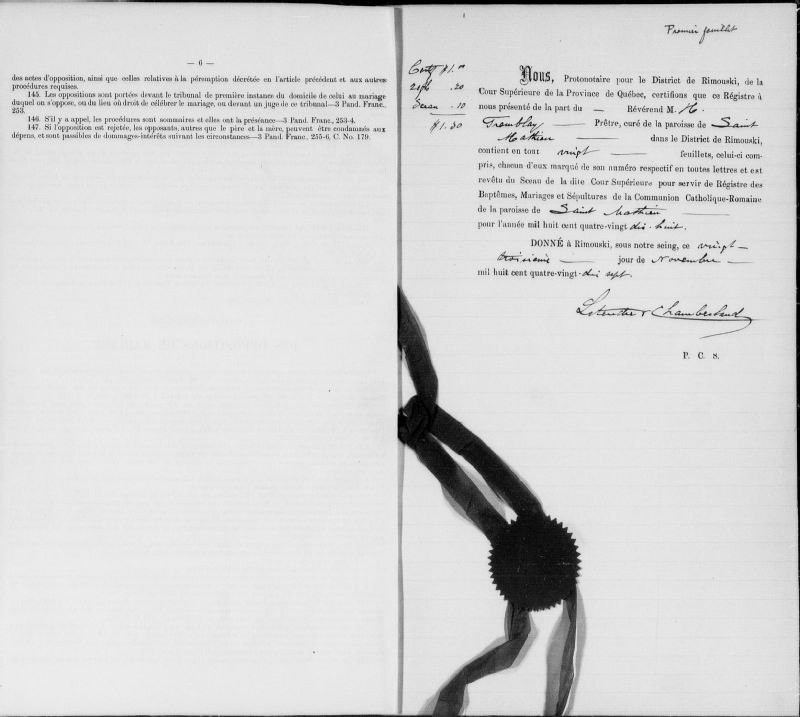 — 6 —
des actes d'opposition, ainsi que celles relatives à la péremption décrétée en l'article précédent et aux autres
procédures requises.
145. Les oppositions sont portées devant le tribunal de première instance du domicile de celui au mariage
duquel on s'oppose, ou du lieu où droit de célébrer le mariage, ou devant un juge de ce tribunal—3 Pand. Franc.,
253.
146. S'il y a appel, les procédures sont sommaires et elles ont la préséance—3 Pand. Franc., 253-4.
147. Si l'opposition est rejetée, les opposants, autres que le père et la mère, peuvent être condamnés aux
dépens, et sont passibles de dommages-intérêts suivant les circonstances—3 Pand. Franc. 255-6, C. No. 179.
Premier feuillet
Certf $1.00
.20
Sceau .10
$1.30
Nous, Protonotaire pour le District de Rimouski, de la
Cour Supérieure de la Province de Québec, certifions que ce Régistre à
nous présenté de la part du — Révérend M. H.
Tremblay — Prêtre, curé de la paroisse de Saint
Mathieu — dans le District de Rimouski,
contient en tout vingt — feuillets, celui-ci com-
pris, chacun d'eux marqué de son numéro respectif en toutes lettres et est
revêtu du Sceau de la dite Cour Supérieure pour servir de Régistre des
Baptêmes, Mariages et Sépultures de la Communion Catholique-Romaine
de la paroisse de Saint Mathieu —
pour l'année mil huit cent quatre-vingt dix-huit.
DONNÉ à Rimouski, sous notre seing, ce vingt-
troisième — jour de Novembre —
mil huit cent quatre-vingt-dix sept.
Letendre & Chamberland
P. C. S.